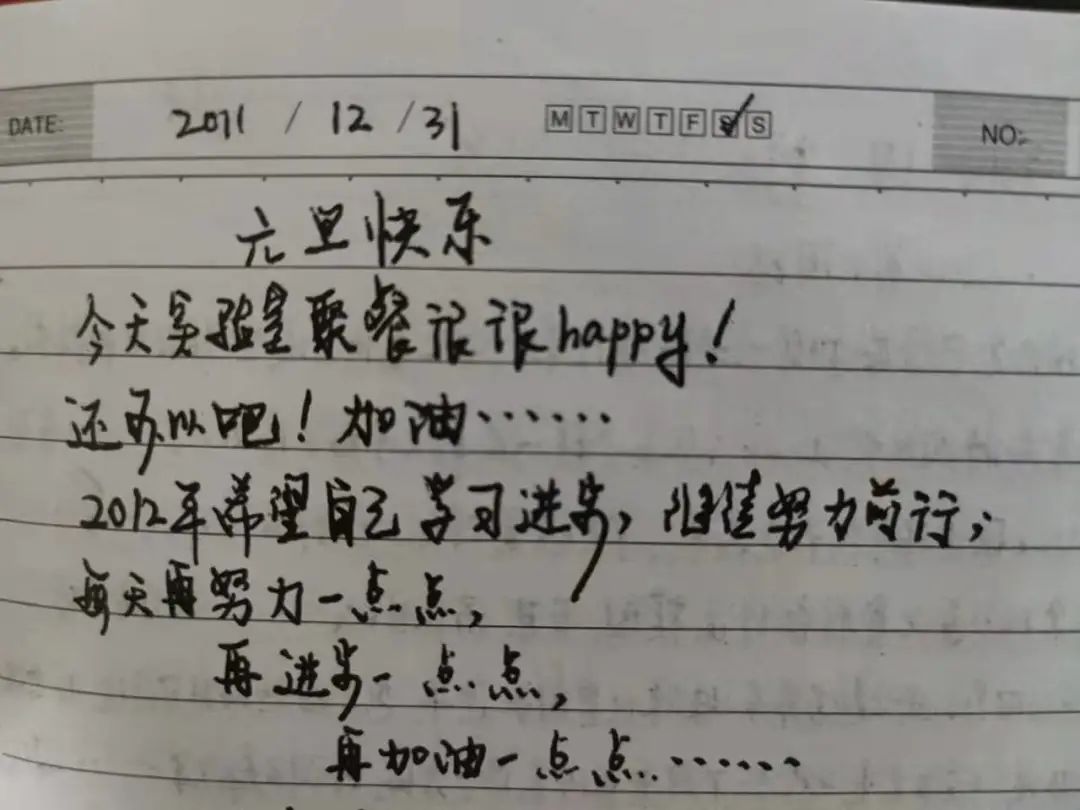 DATE: 2011 / 12 / 31 M T W T F S S NO:
元旦快乐
今天实验室聚餐很很happy！
还可以吧！加油……
2012年希望自己学习进步，继续努力前行；
每天再努力一点点，
再进步一点点，
再加油一点点……